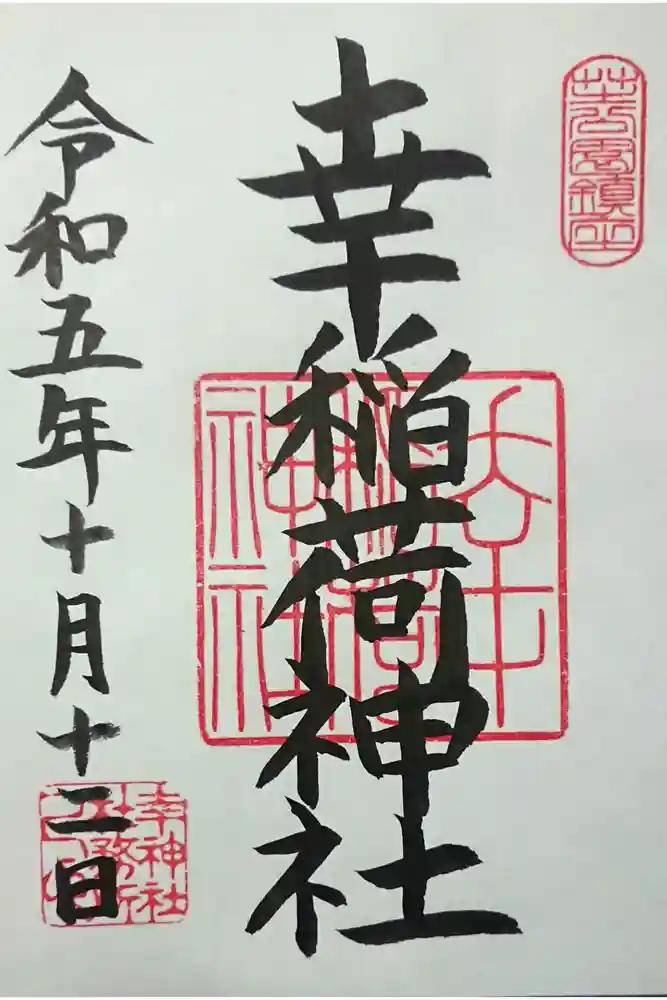 芝公園鎮座
幸稲荷神社
幸
稲荷
神社
令和五年十月十二日
幸神社